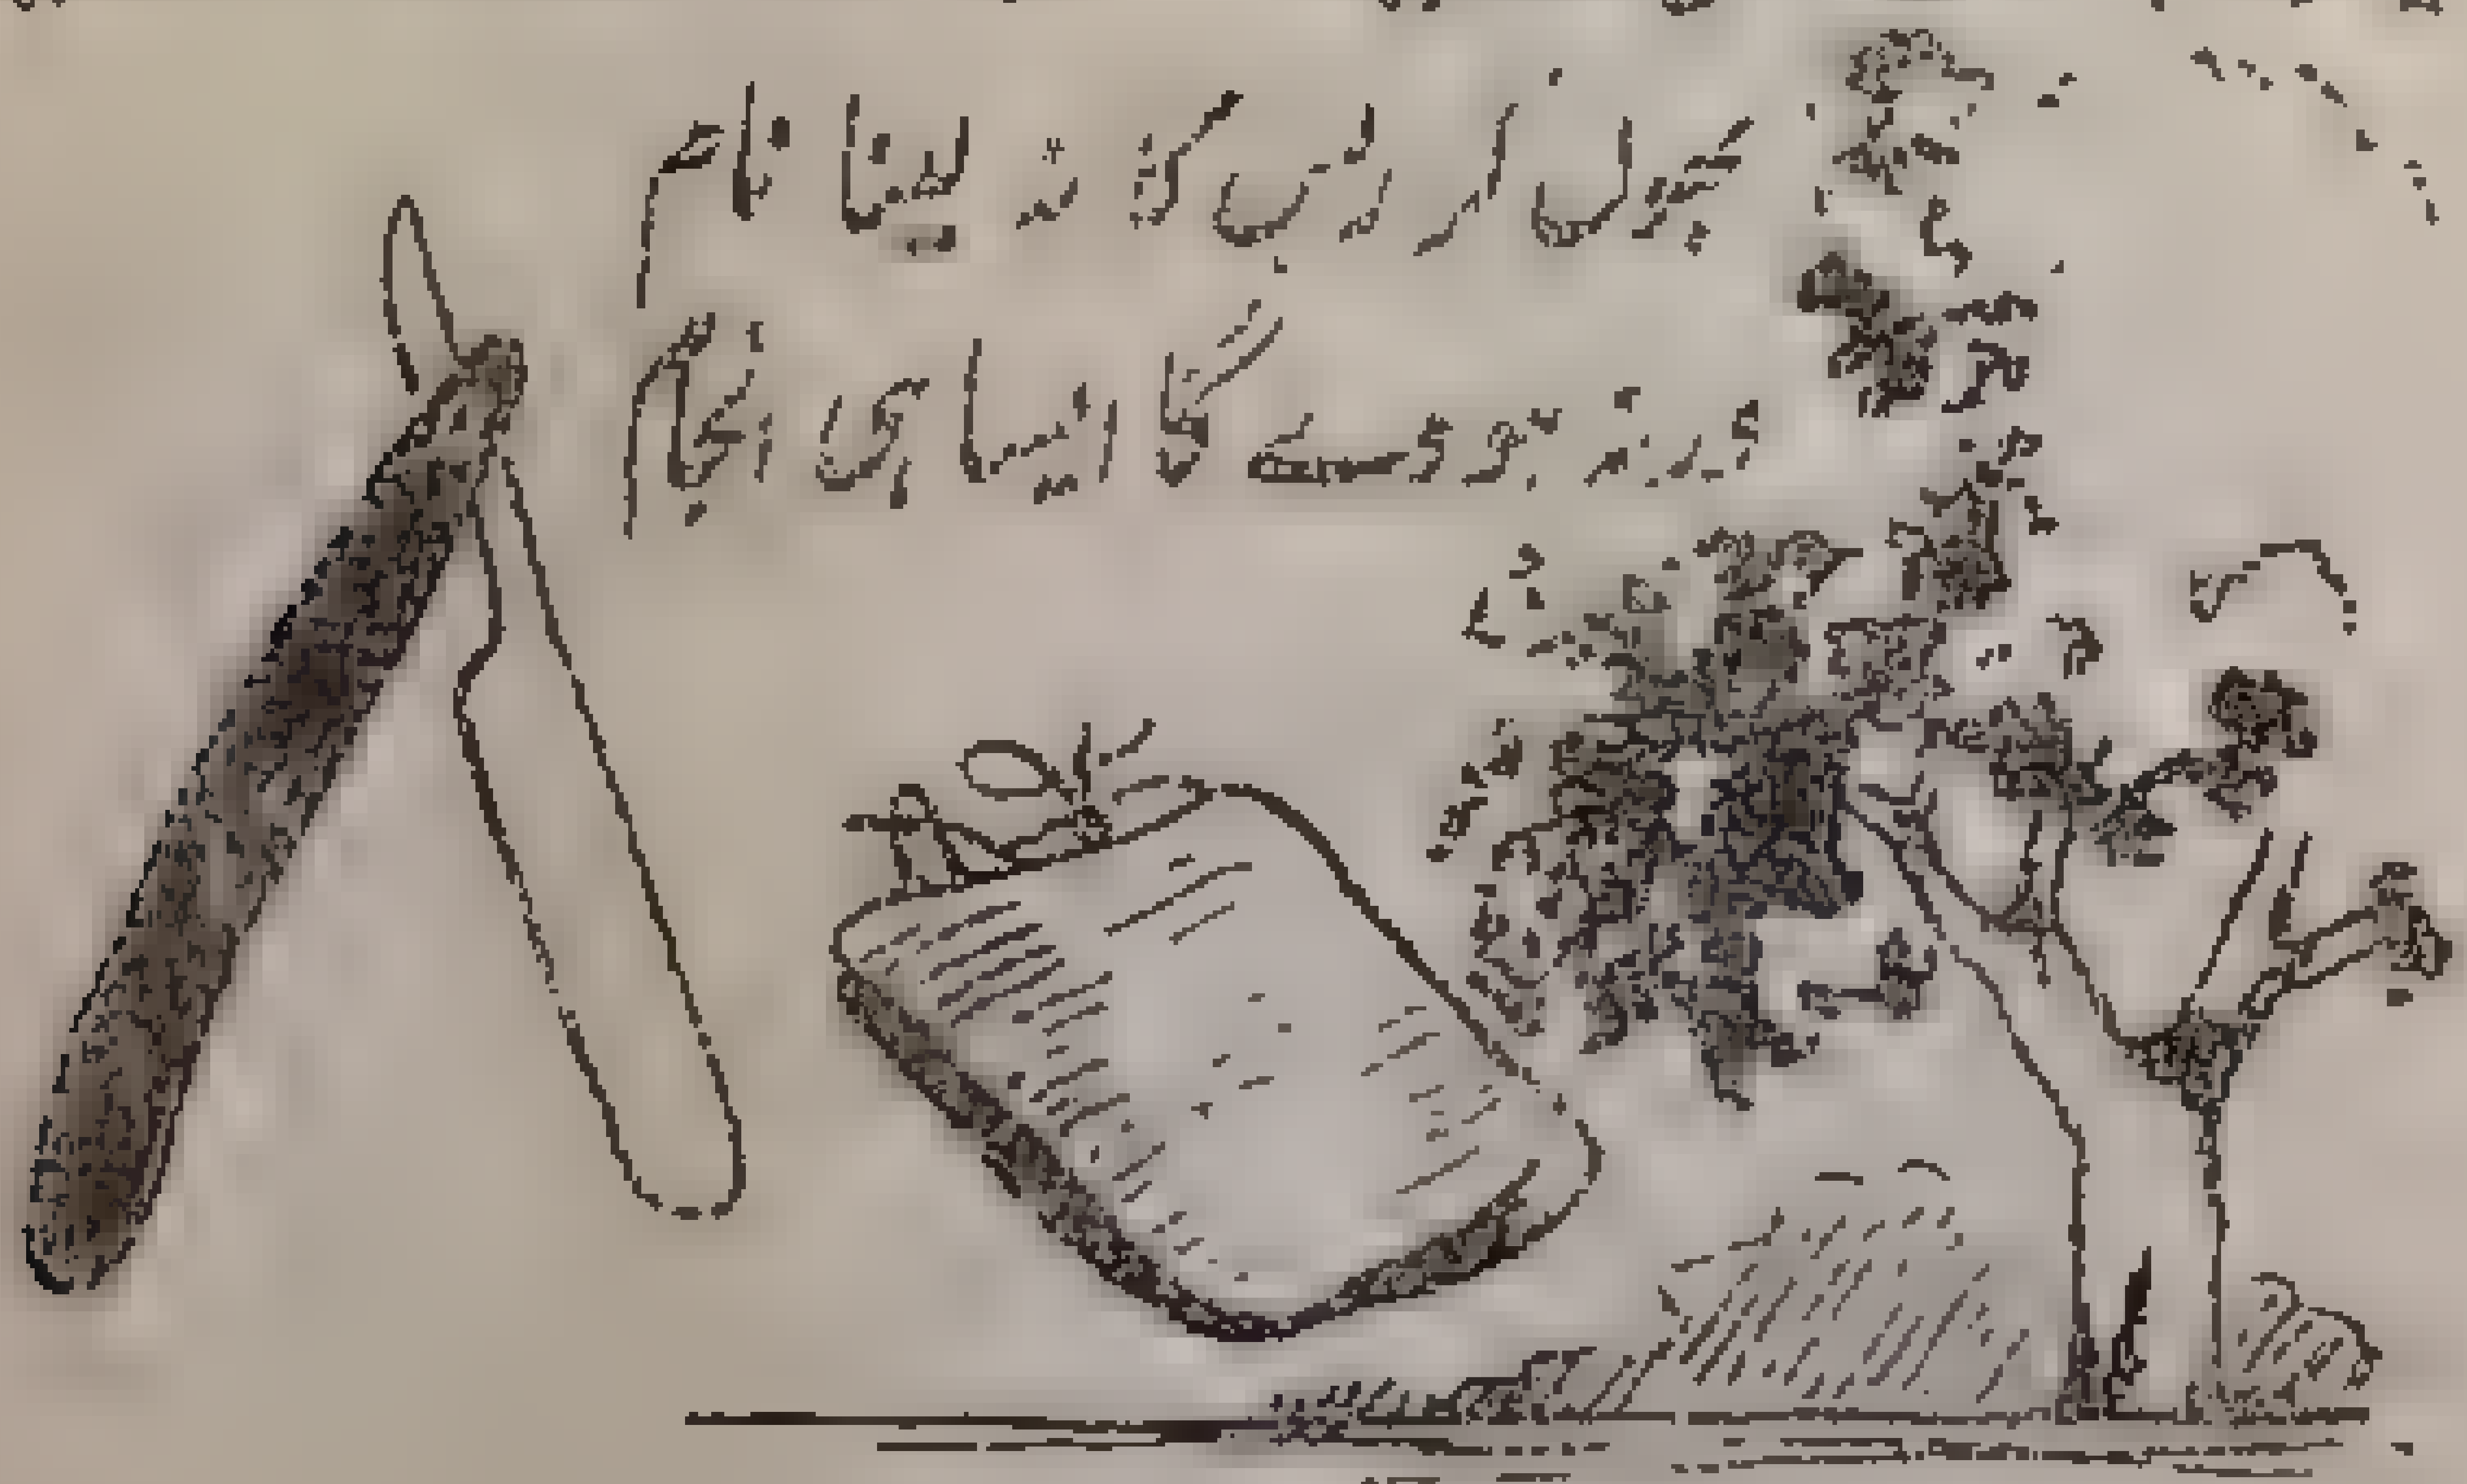 پھول کر ریس کا نہ لینا نام
ورنہ ہووے گا ایسا ہی انجام